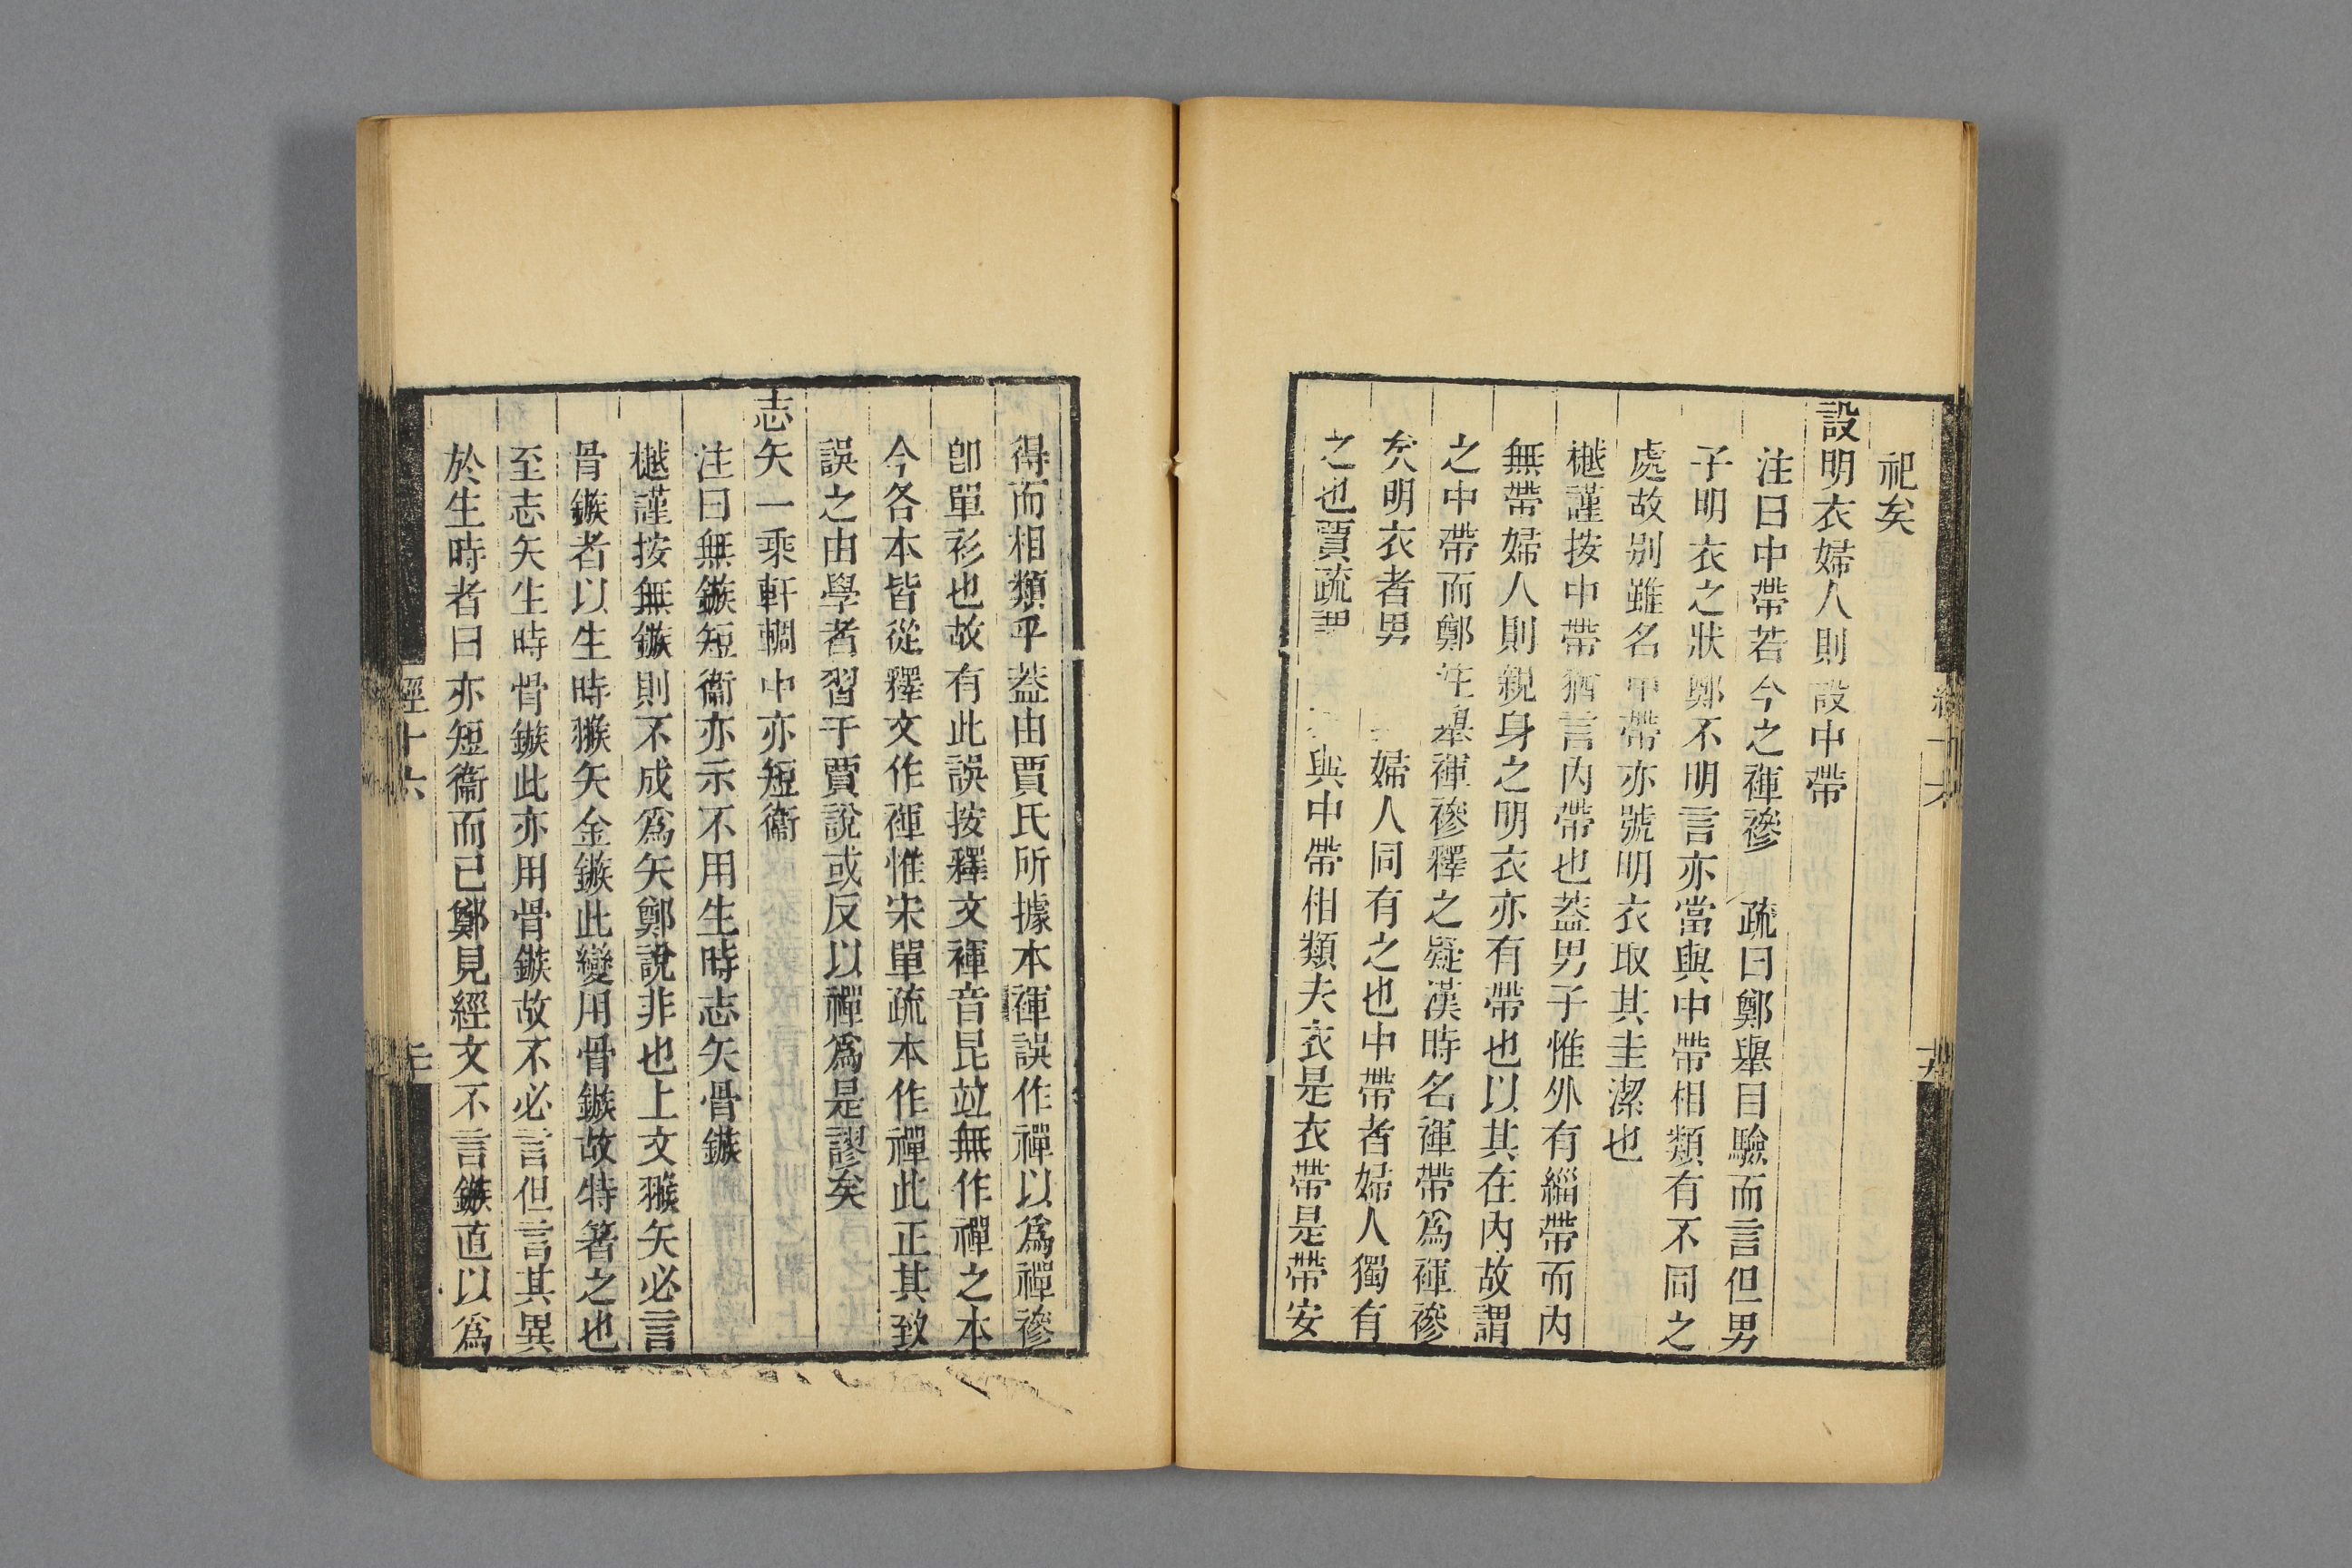 祀矣
設明衣婦人則設中帶
注曰中帶若今之褌襂 疏曰鄭舉目驗而言但男
子明衣之狀鄭不明言亦當與中帶相類有不同之
處故别雖名中帶亦號明衣取其圭潔也
樾謹按中帶猶言内帶也葢男子惟外有緇帶而内
無帶婦人則親身之明衣亦有帶也以其在内故謂
之中帶而鄭注舉褌襂釋之疑漢時名褌帶爲褌襂
矣明衣者男 婦人同有之也中帶者婦人獨有
之也賈疏謂 與中帶相類夫衣是衣帶是帶安
得而相類乎葢由賈氏所據本褌誤作襌以爲襌襂
卽單衫也故有此誤按釋文褌音昆竝無作襌之本
今各本皆從釋文作褌惟宋單疏本作襌此正其致
誤之由學者習于賈說或反以襌爲是謬矣
志矢一乘軒輖中亦短衞
注曰無鏃短衞亦示不用生時志矢骨鏃
樾謹按無鏃則不成爲矢鄭說非也上文猴矢必言
骨鏃者以生時猴矢金鏃此變用骨鏃故特箸之也
至志矢生時骨鏃此亦用骨鏃故不必言但言其異
於生時者曰亦短衞而已鄭見經文不言鏃直以爲
經十六